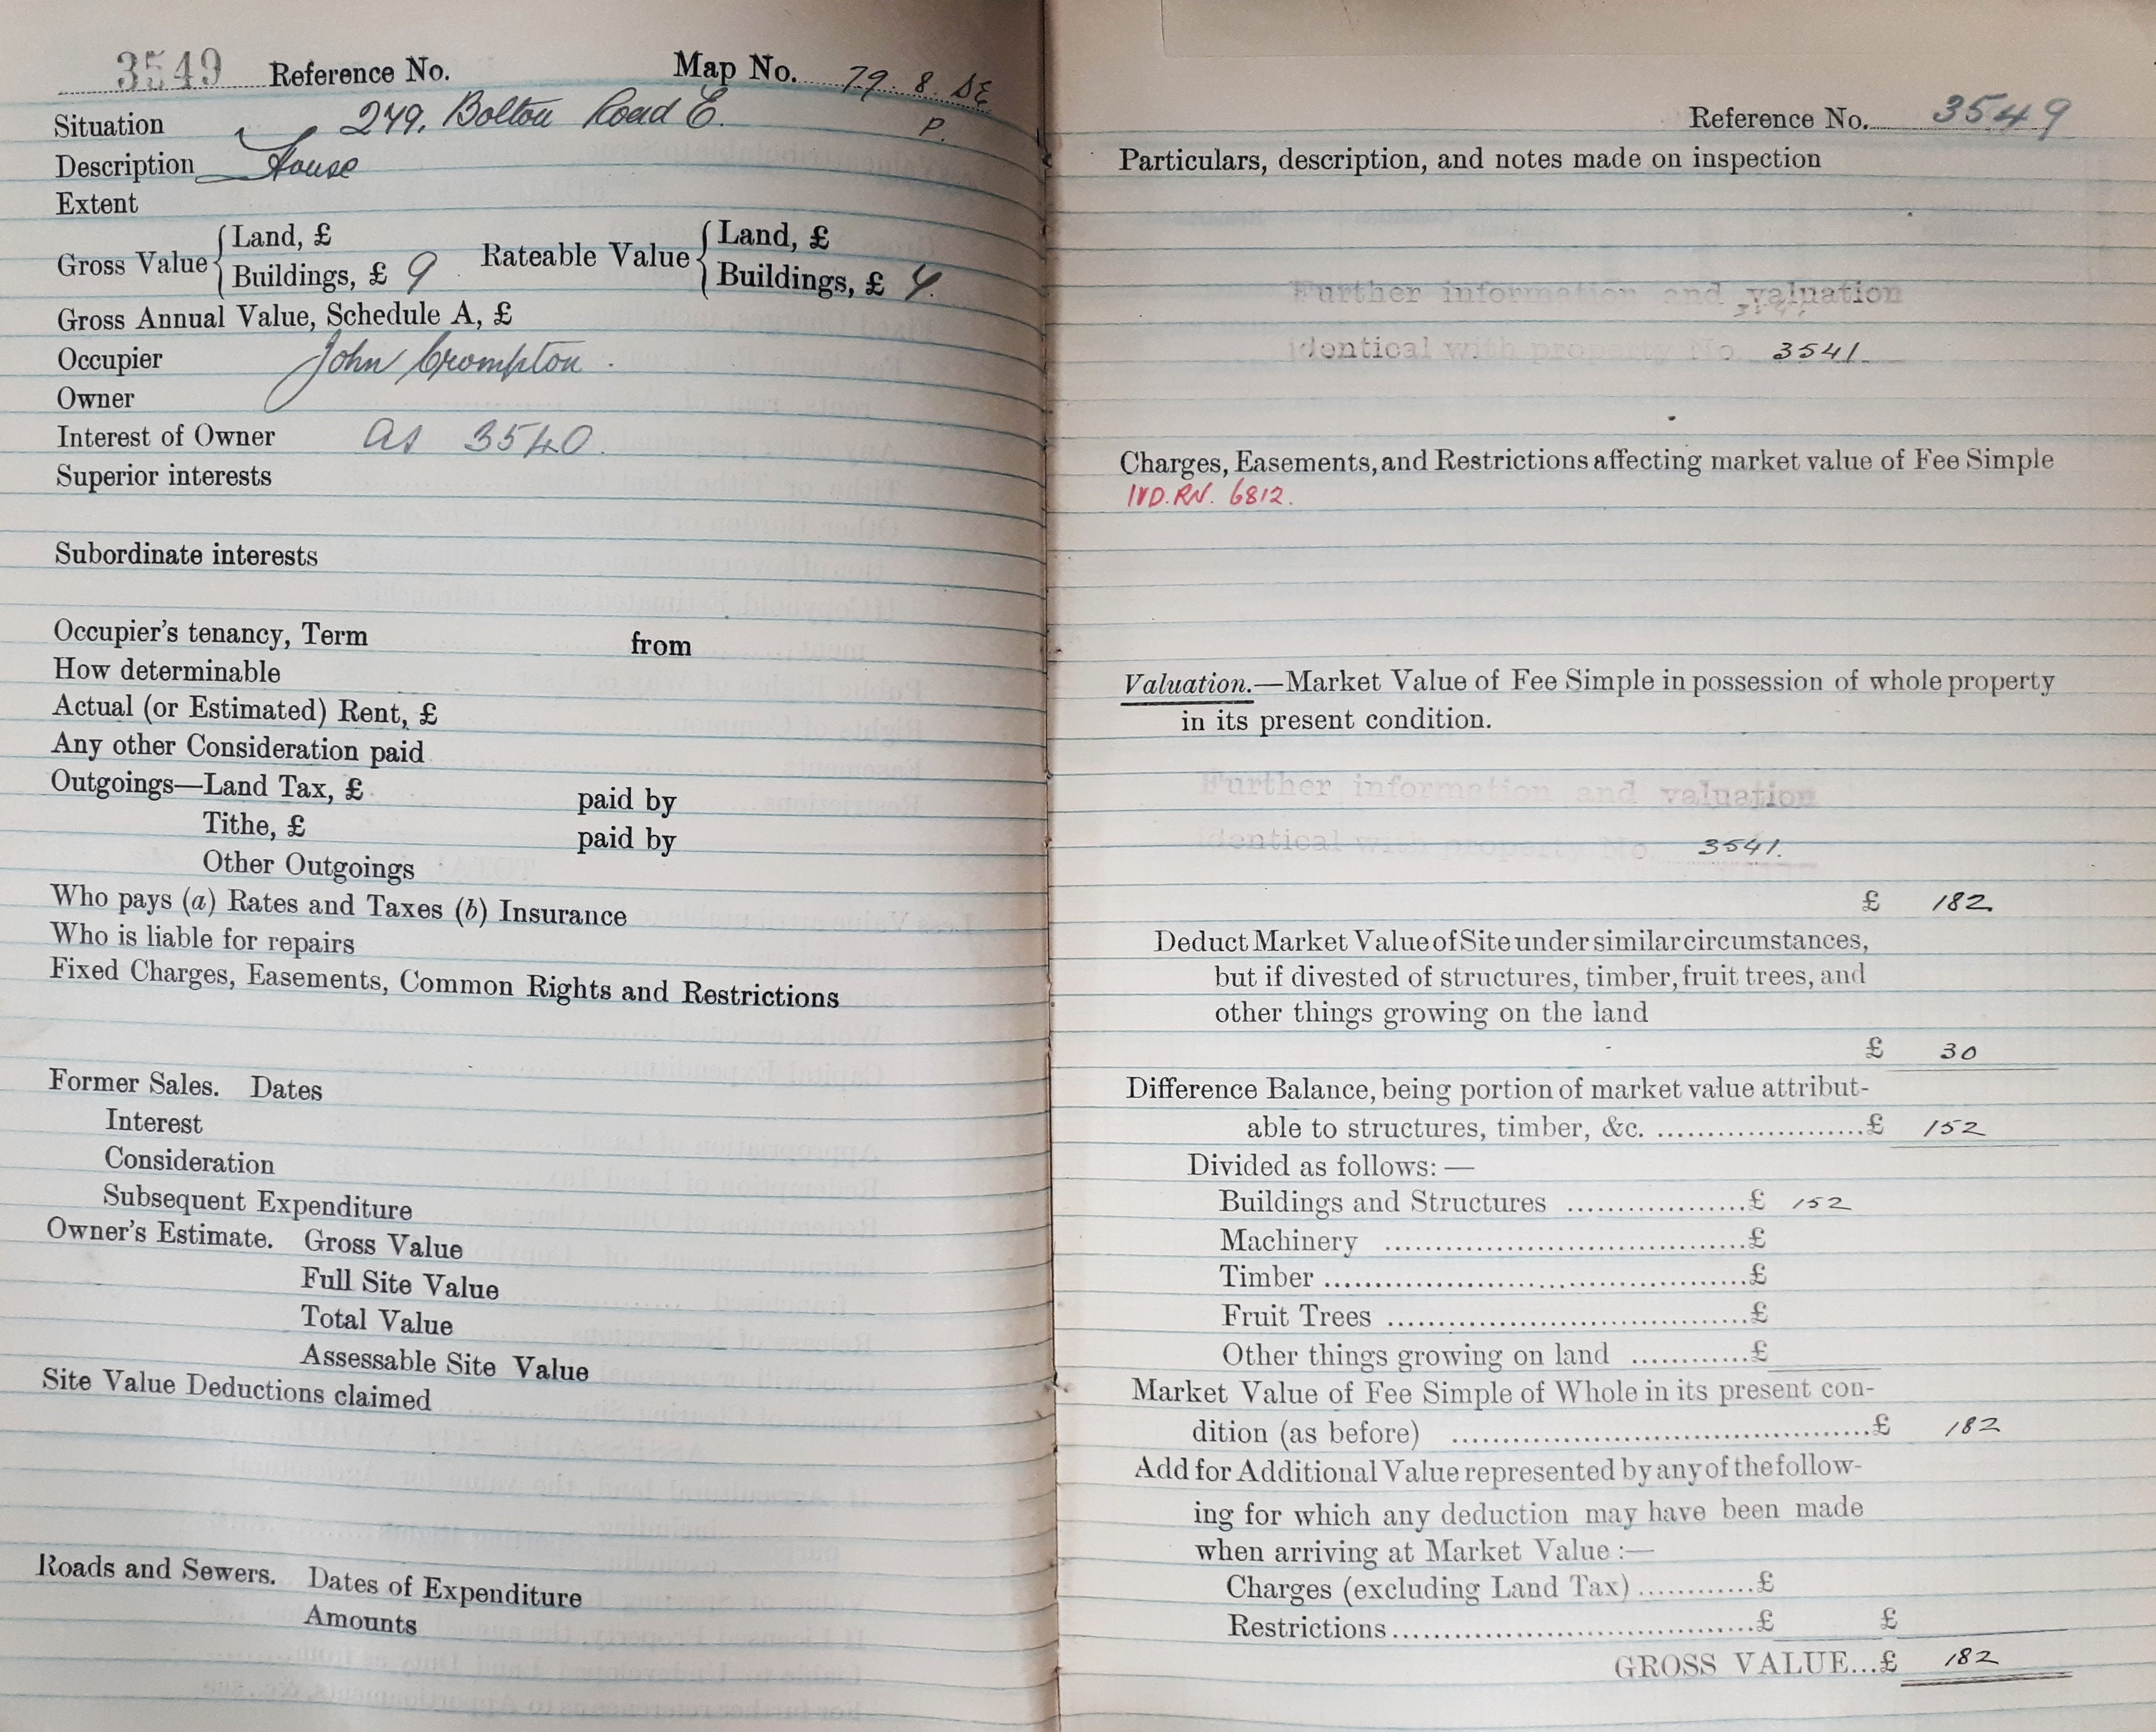 3549 Reference No. Map No. 79. 8. SE
P.
Situation 249, Bolton Road E.
Description House
Extent
Gross Value { Land, £
Buildings, £ 9 Rateable Value { Land, £
Buildings, £ 7.
Gross Annual Value, Schedule A, £
Occupier John Crompton.
Owner
Interest of Owner As 3540.
Superior interests
Subordinate interests
Occupier's tenancy, Term from
How determinable
Actual (or Estimated) Rent, £
Any other Consideration paid
Outgoings—Land Tax, £ paid by
Tithe, £ paid by
Other Outgoings
Who pays (a) Rates and Taxes (b) Insurance
Who is liable for repairs
Fixed Charges, Easements, Common Rights and Restrictions
Former Sales. Dates
Interest
Consideration
Subsequent Expenditure
Owner's Estimate. Gross Value
Full Site Value
Total Value
Assessable Site Value
Site Value Deductions claimed
Roads and Sewers. Dates of Expenditure
Amounts
Reference No. 3549
Particulars, description, and notes made on inspection
Further information and valuation
identical with property No 3541.
Charges, Easements, and Restrictions affecting market value of Fee Simple
IVD. RN. 6812.
Valuation.—Market Value of Fee Simple in possession of whole property
in its present condition.
Further information and valuation
identical with property No 3541.
£ 182.
Deduct Market Value of Site under similar circumstances,
but if divested of structures, timber, fruit trees, and
other things growing on the land
£ 30
Difference Balance, being portion of market value attribut-
able to structures, timber, &c. ......................£ 152
Divided as follows: —
Buildings and Structures ..................£ 152
Machinery ....................................£
Timber ..........................................£
Fruit Trees ...................................£
Other things growing on land ............£
Market Value of Fee Simple of Whole in its present con-
dition (as before) ..........................................£ 182
Add for Additional Value represented by any of the follow-
ing for which any deduction may have been made
when arriving at Market Value :—
Charges (excluding Land Tax) ............£
Restrictions ...................................£ £
GROSS VALUE...£ 182